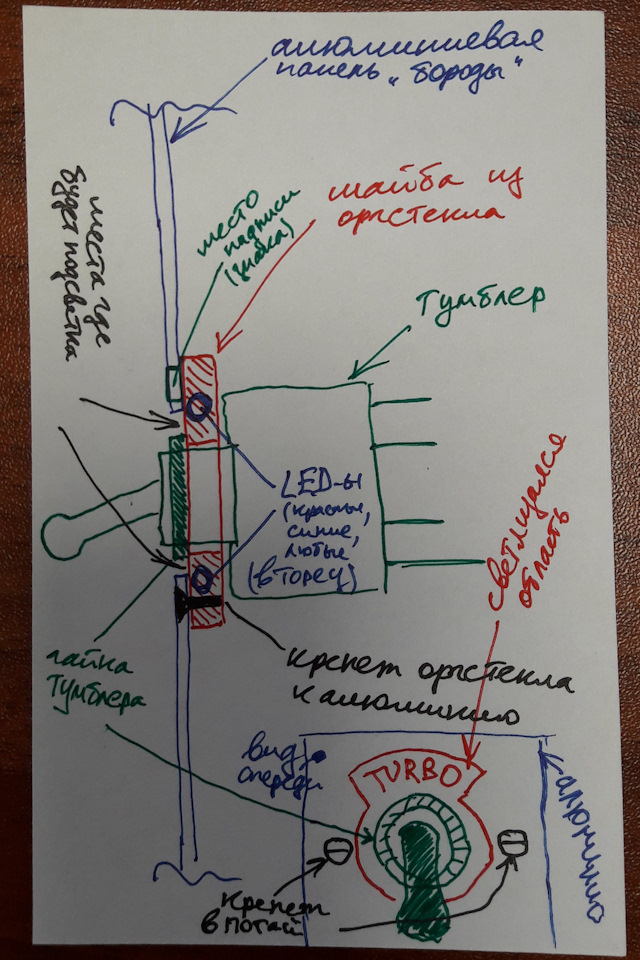 алюминиевая
панель „бороды"
места где
будет подсветка
место
надписи
(знака)
шайба из
оргстекла
тумблер
LED-ы
(красные,
синие,
любые
(в торец)
светящаяся
область
гайка
тумблера
крепеж оргстекла
к алюминию
вид
спереди
TURBO
алюминий
крепеж
в потай